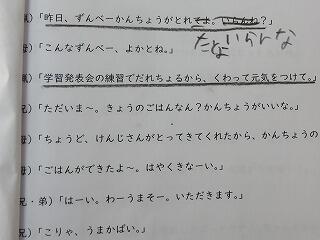 「昨日、ずんべーかんちょうがとれそよ。いらんね？」
たな いらんな
母）「こんなずんべー、よかとね。」
「学習発表会の練習でだれちょるから、くわって元気をつけて。」
兄）「ただいま～。きょうのごはんなん？かんちょうがいいな。」
母）「ちょうど、けんじさんがとってきてくれたから、かんちょうの
母）「ごはんができたよ～。はやくきなーい。」
兄・弟）「はーい。わーうまそー。いただきます。」
兄）「こりゃ、うまかばい。」